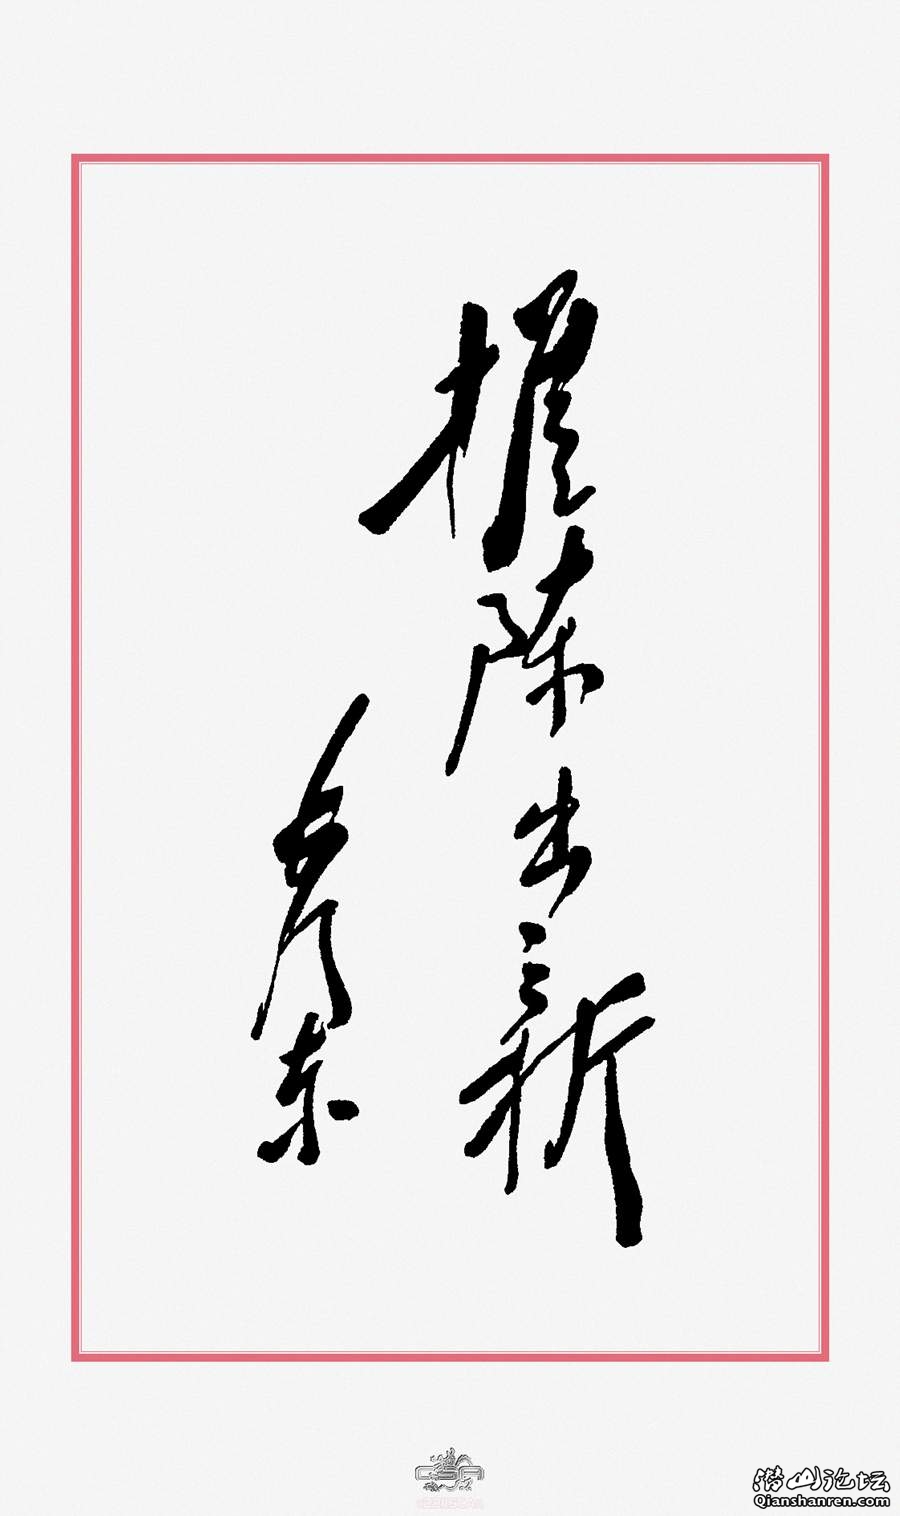 推陈出新
毛泽东
CSA
潜山论坛
Qianshanren.com